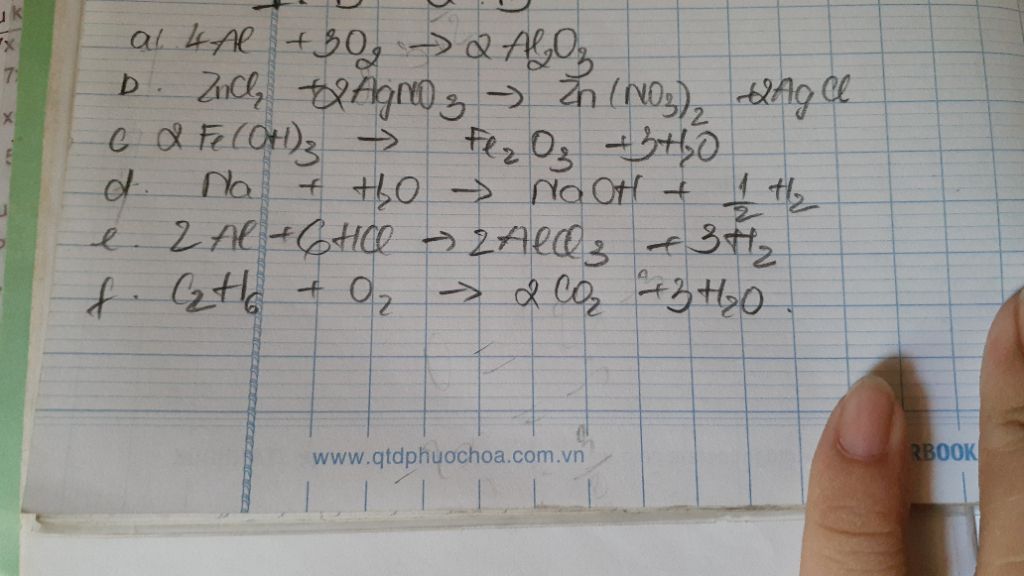 a, 4Al + 3O2 → 2Al2O3
b. ZnCl2 + 2AgNO3 → Zn(NO3)2 + 2AgCl
c 2Fe(OH)3 → Fe2O3 + 3H2O
d. Na + H2O → NaOH + 1/2 H2
e. 2Al + 6HCl → 2AlCl3 + 3H2
f. C2H6 + O2 → 2CO2 + 3H2O.
www.qtdphuochoa.com.vn
RBOOK